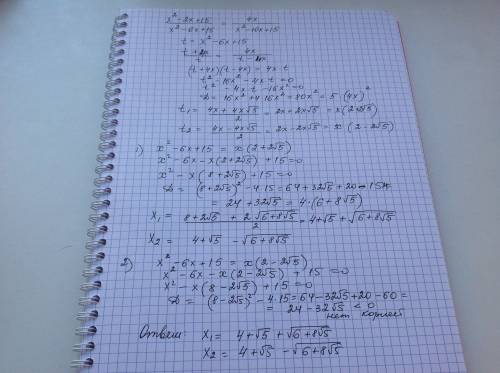 x² - 2x + 15 / x² - 6x + 15 = 4x / x² - 10x + 15
t = x² - 6x + 15
t + 4x / t = 4x / t - 4x
(t + 4x)(t - 4x) = 4x t
t² - 16x² - 4x t = 0
t² - 4x t - 16x² = 0
D = 16x² + 4·16x² = 80x² = 5·(4x)²
t₁ = 4x + 4x√5 / 2 = 2x + 2x√5 = x(2+2√5)
t₂ = 4x - 4x√5 / 2 = 2x - 2x√5 = x(2 - 2√5)
1) x² - 6x + 15 = x(2 + 2√5)
x² - 6x - x(2+2√5) + 15 = 0
x² - x(8 + 2√5) + 15 = 0
D = (8+2√5)² - 4·15 = 64 + 32√5 + 20 - 15·4
= 24 + 32√5 = 4·(6 + 8√5)
x₁ = 8 + 2√5 + 2√6+8√5 / 2 = 4+√5 + √6+8√5
x₂ = 4+√5 - √6+8√5
2) x² - 6x + 15 = x(2 - 2√5)
x² - 6x - x(2 - 2√5) + 15 = 0
x² - x(8 - 2√5) + 15 = 0
D = (8 - 2√5)² - 4·15 = 64 - 32√5 + 20 - 60 =
= 24 - 32√5 < 0
нет корней
Ответ: x₁ = 4 + √5 + √6+8√5
x₂ = 4 + √5 - √6+8√5